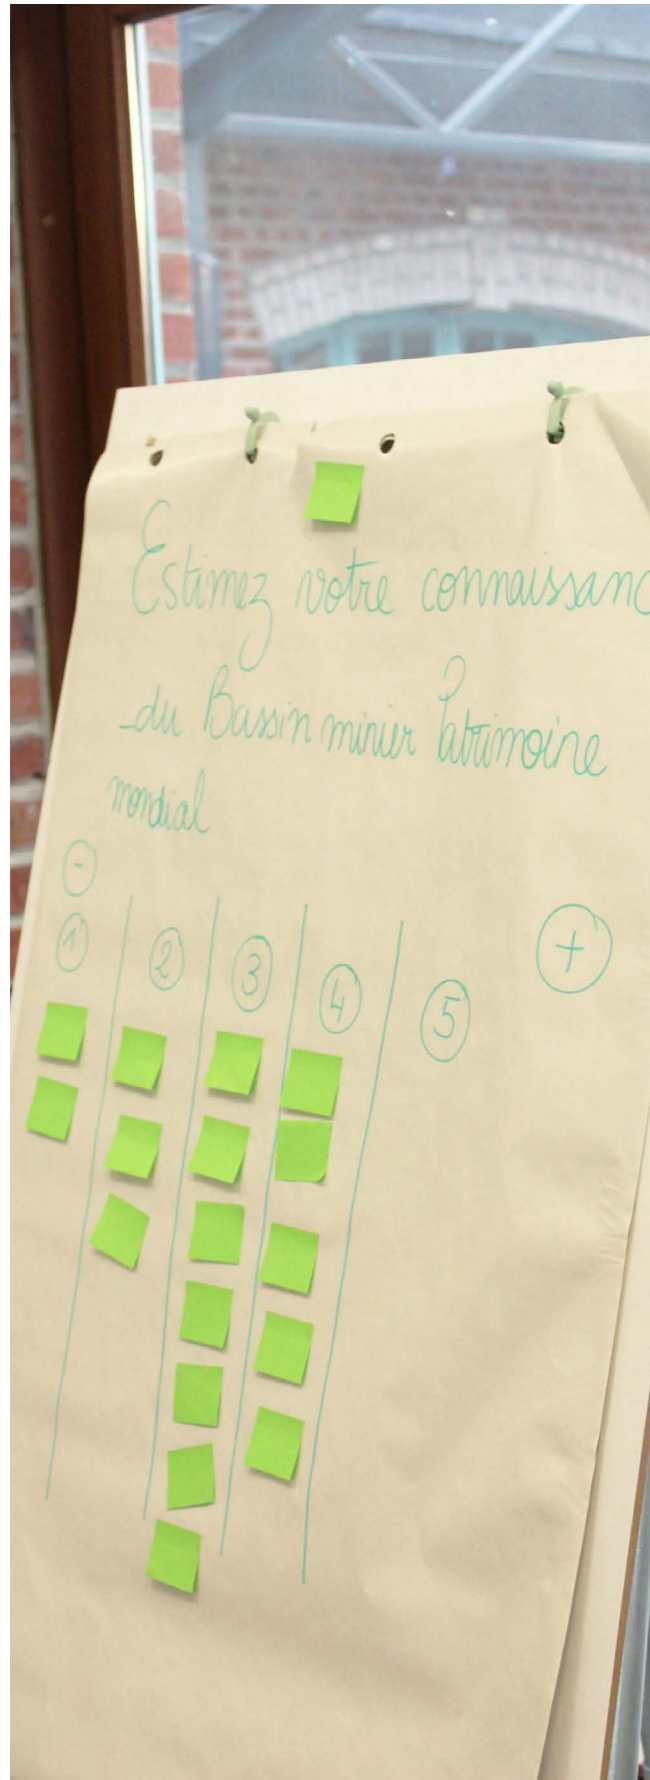 Estimez votre connaissanc
du Bassin minier Patrimoine
mondial
-
1 2 3 4 5 +